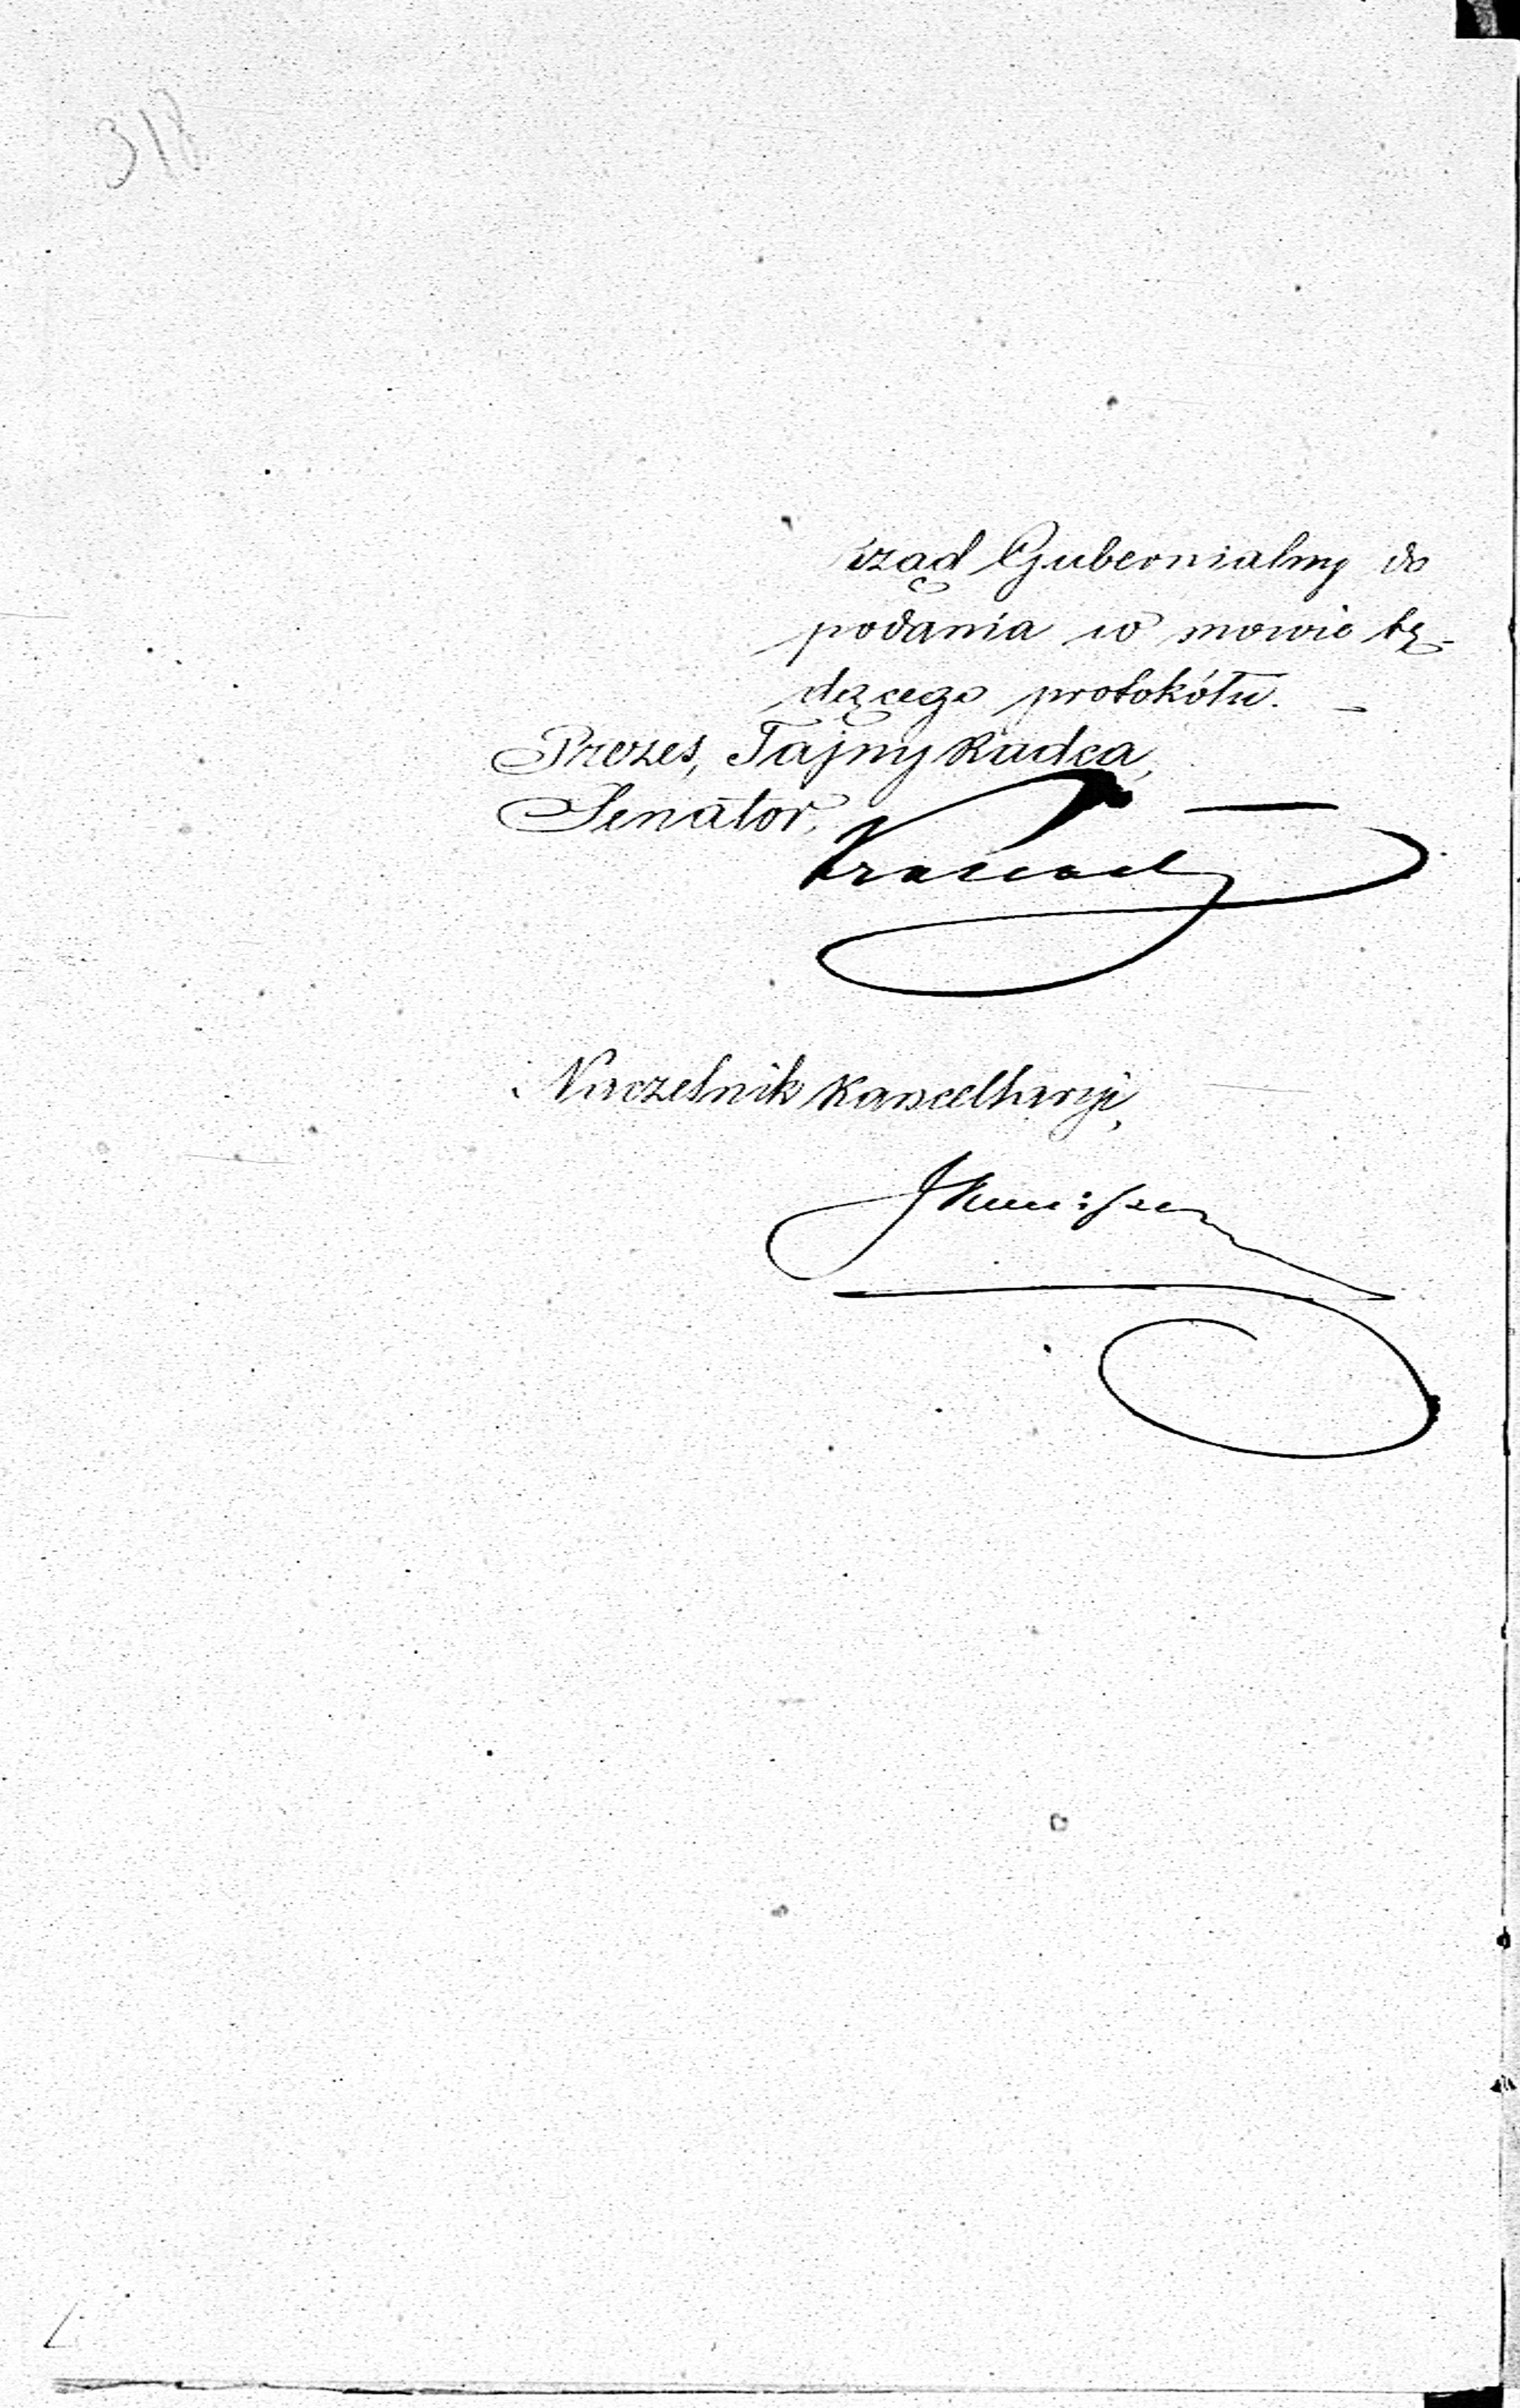 318
rząd Gubernialny do
podania w mowie bę-
dącego protokółu. –
Prezes, Tajny Radca,
Senator,
Naczelnik Kancellaryi,